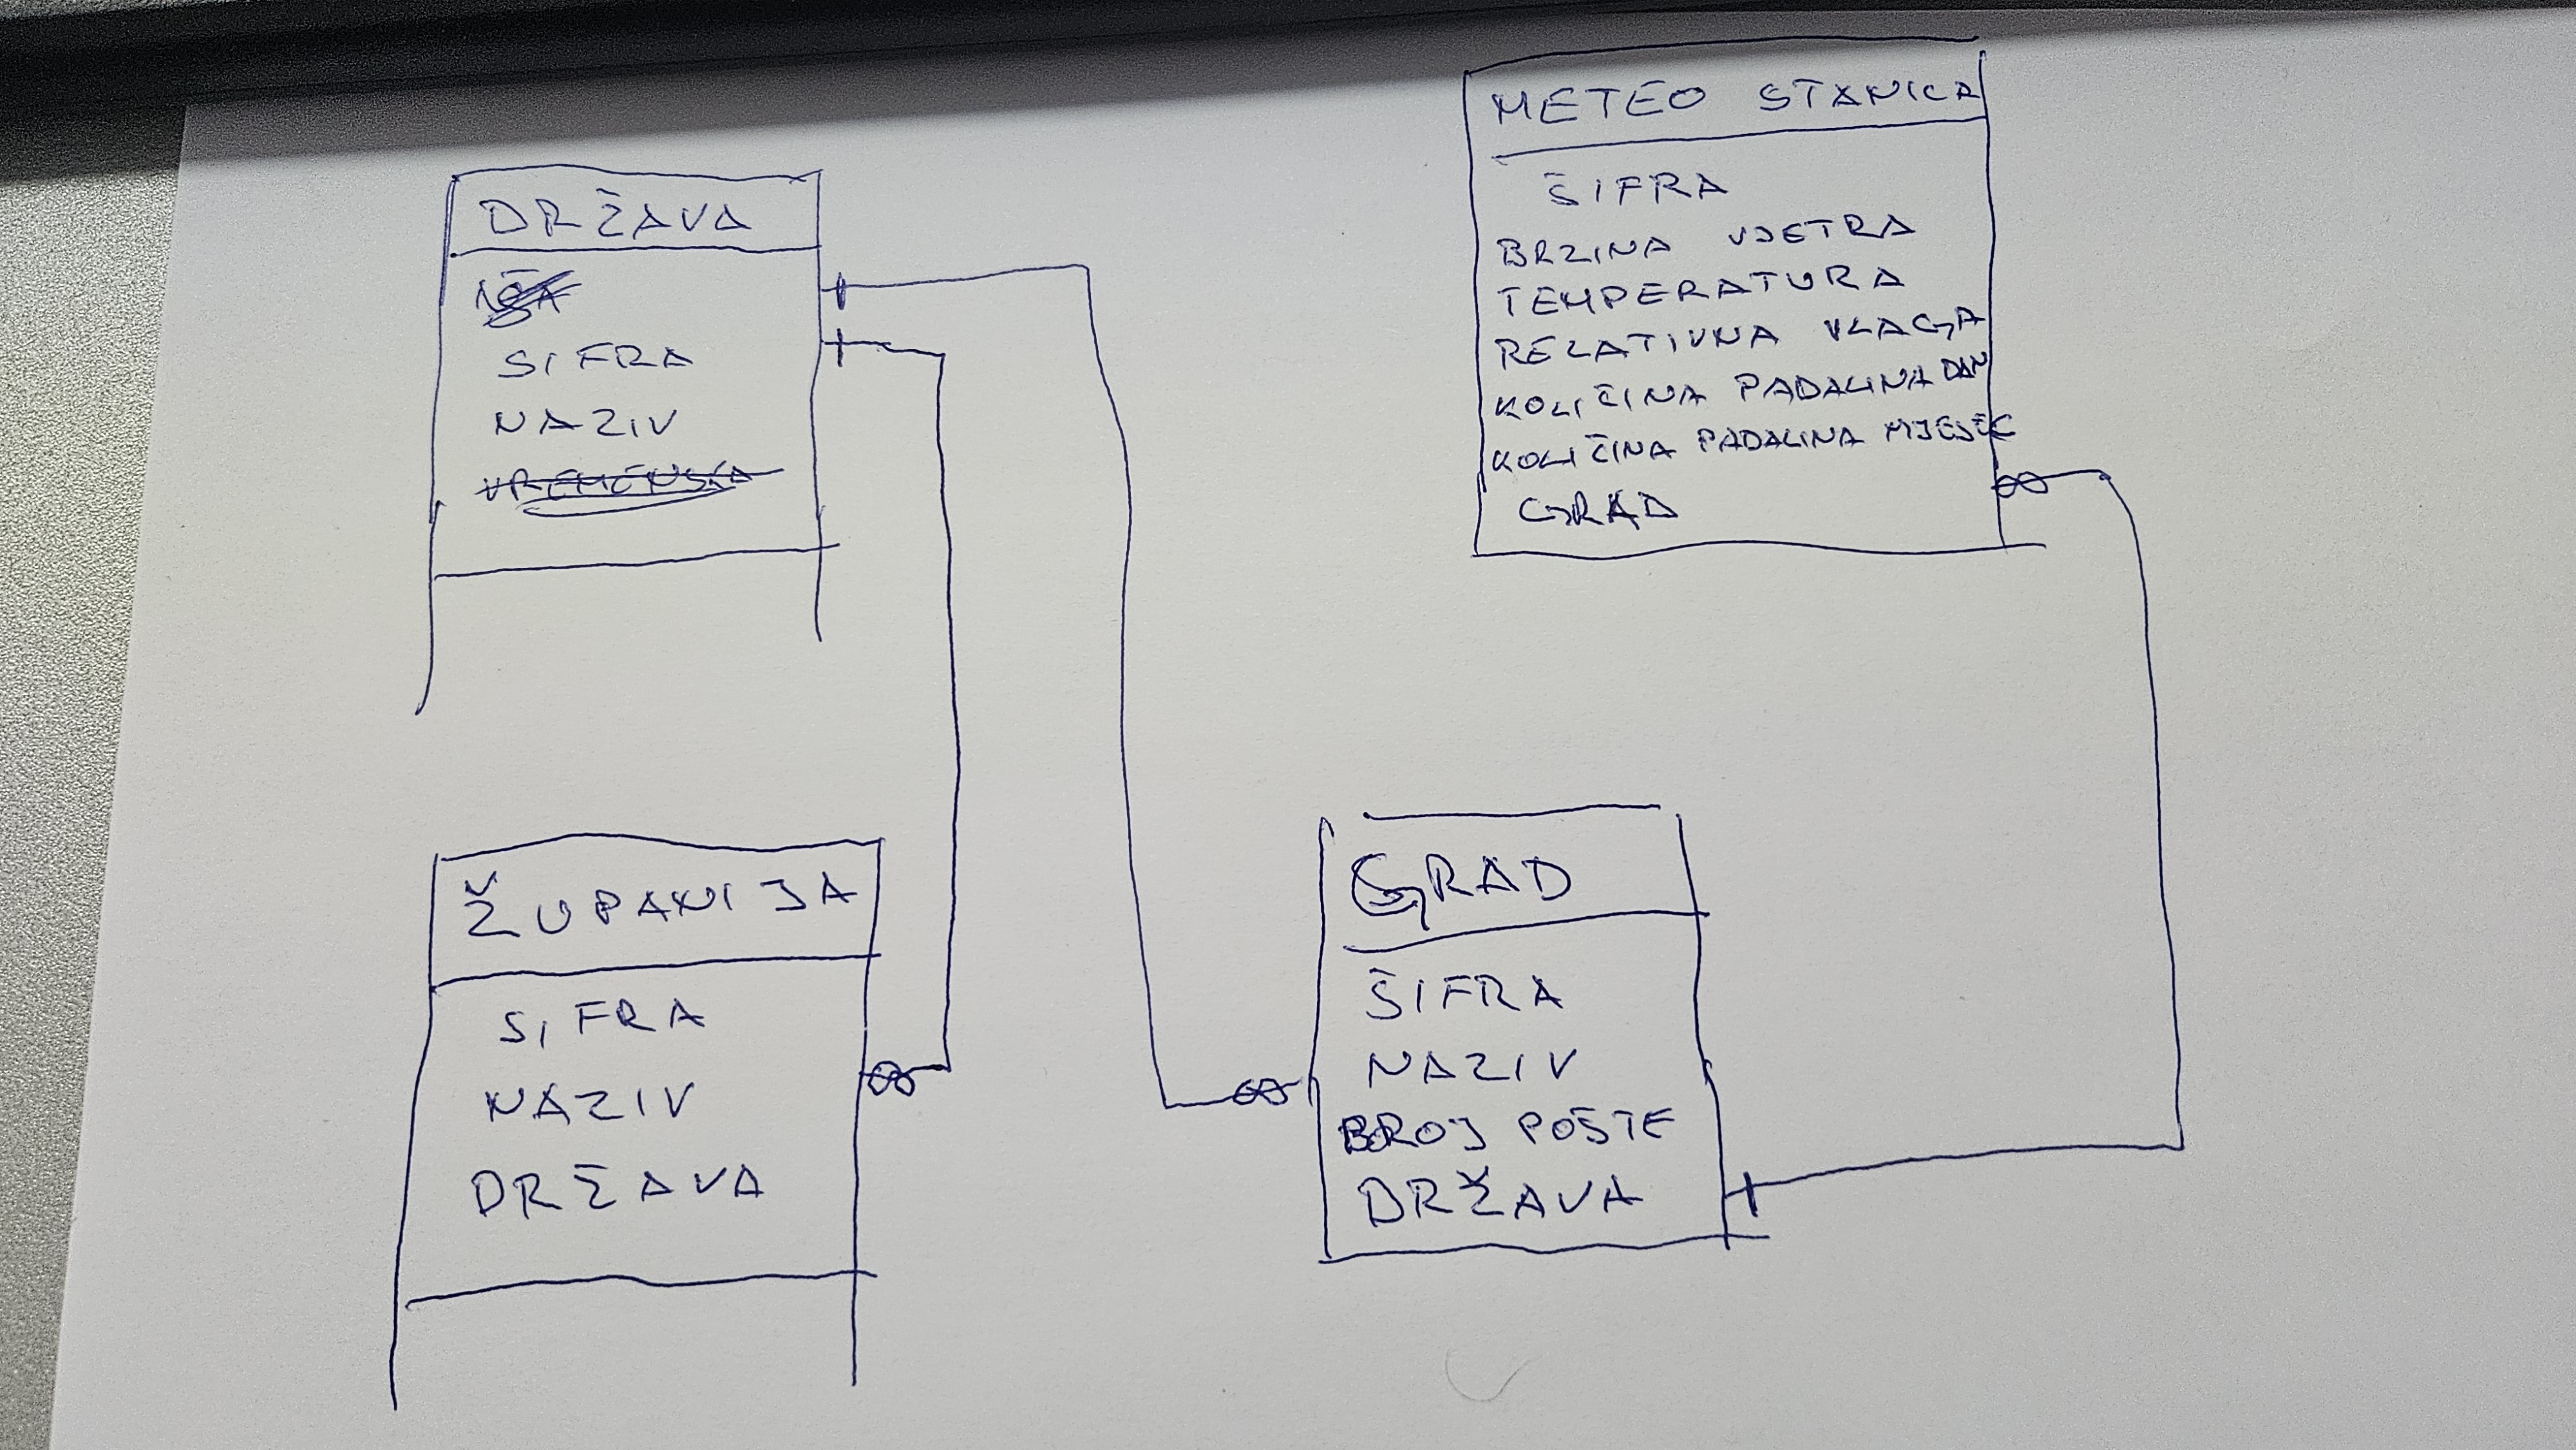 DRŽAVA
SIFRA
NAZIV
VREMENSKA
METEO STANICA
ŠIFRA
BRZINA VJETRA
TEMPERATURA
RELATIVNA VLAGA
KOLIČINA PADALINA DAN
KOLIČINA PADALINA MJESEC
GRAD
ŽUPANIJA
SIFRA
NAZIV
DRŽAVA
GRAD
ŠIFRA
NAZIV
BROJ POŠTE
DRŽAVA